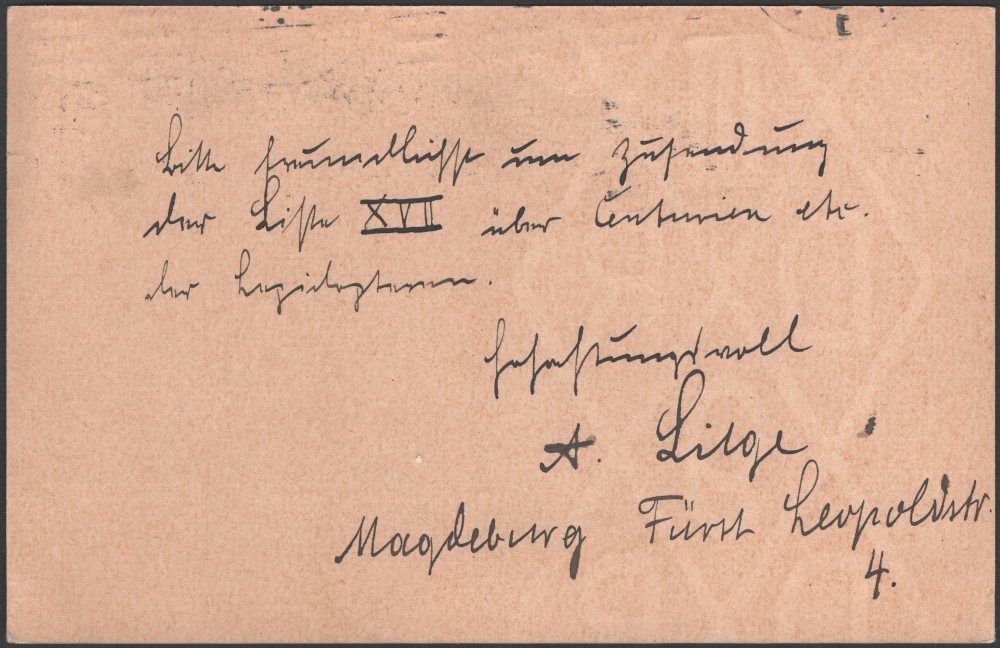 Bitte freundlichst um Zusendung
der Liste XVII über Centurien etc.
der Lepidopteren.
Hochachtungsvoll
A. Lilge
Magdeburg Fürst Leopoldstr.
4.